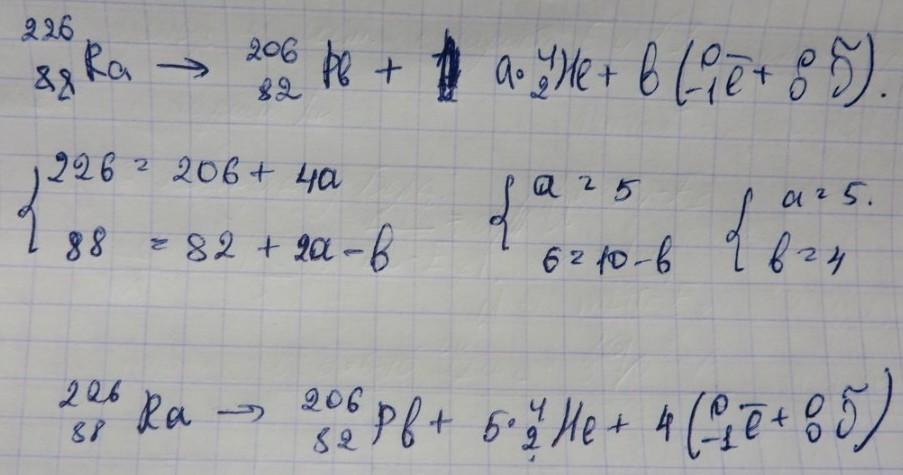 ²²⁶₈₈Ra → ²⁰⁶₈₂Pb + a·⁴₂He + b(⁰₋₁e̅ + ⁰₀ν̃).
{226 = 206 + 4a {a = 5 {a = 5.
88 = 82 + 2a - b 6 = 10 - b b = 4
²²⁶₈₈Ra → ²⁰⁶₈₂Pb + 5·⁴₂He + 4(⁰₋₁e̅ + ⁰₀ν̃)